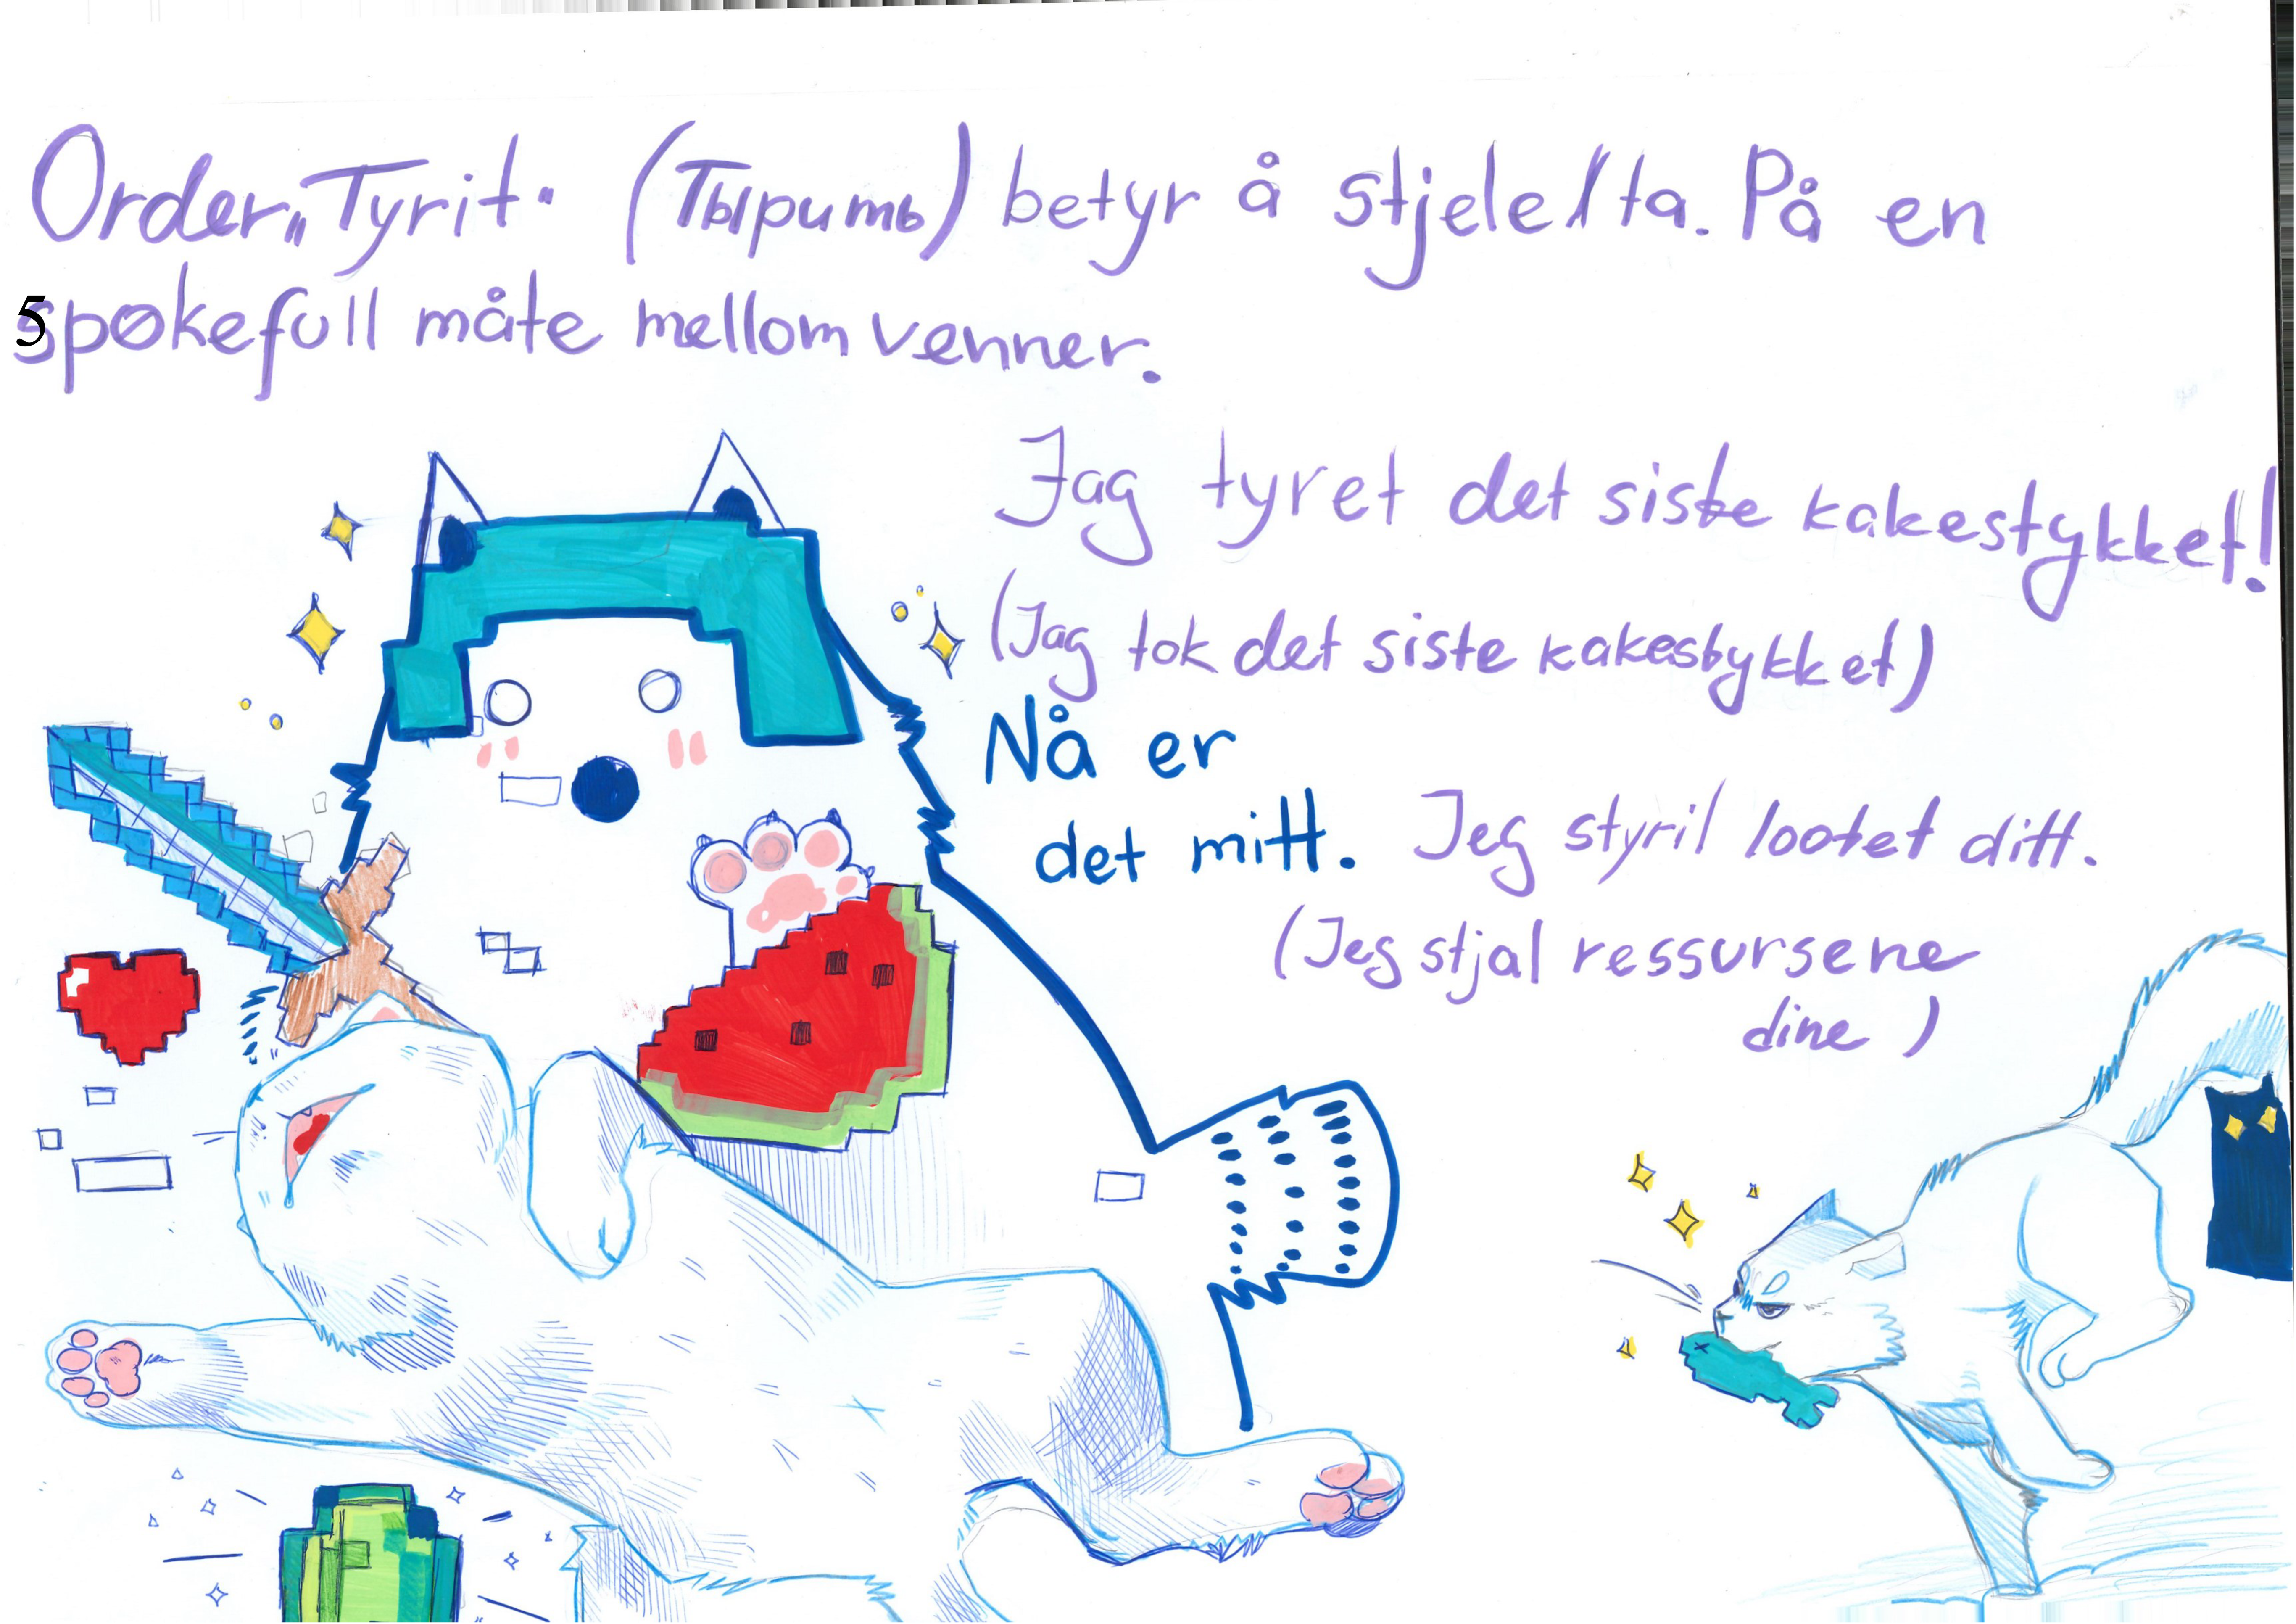 Order „Tyrit" (Тырить) betyr å stjele/ta. På en
5
spøkefull måte mellom venner.
Jag tyret det siste kakestykket!
(Jag tok det siste kakestykket)
Nå er
det mitt.
Jeg styril lootet ditt.
(Jeg stjal ressursene
dine)